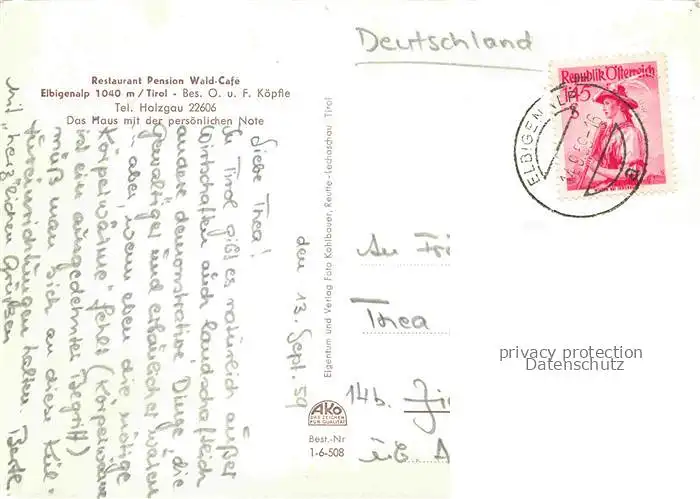 Deutschland
Restaurant Pension Wald-Cafe
Elbigenalp 1040 m / Tirol - Bes. O. u. F. Köpfle
Tel. Holzgau 22606
Das Haus mit der persönlichen Note
den 13. Sept. 59
Liebe Thea!
In Tirol gibt es natürlich außer
Wirtschaften auch landschaftlich
andere demonstrative Dinge, die
gewaltiger und erbaulicher wären
aber, wenn eben die nötige
"Körperwärme" fehlt (Körperwärme
ist ein ausgedehnter Begriff)
muß man sich an diese
halten.
Mit "herzlichen Grüßen
Eigentum und Verlag Foto Kohlbauer, Reutte-Lechaschau Tirol
AKO
DAS ZEICHEN
FÜR QUALITÄT
Best.-Nr
1-6-508
Republik Österreich
1.45
S
ELBIGENALP
An
Thea
14b.
privacy protection
Datenschutz